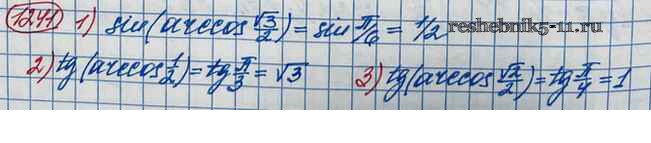 1241 1) sin(arccos √3/2) = sin π/6 = 1/2
reshebnik5-11.ru
2) tg(arccos 1/2) = tg π/3 = √3 3) tg(arccos √2/2) = tg π/4 = 1